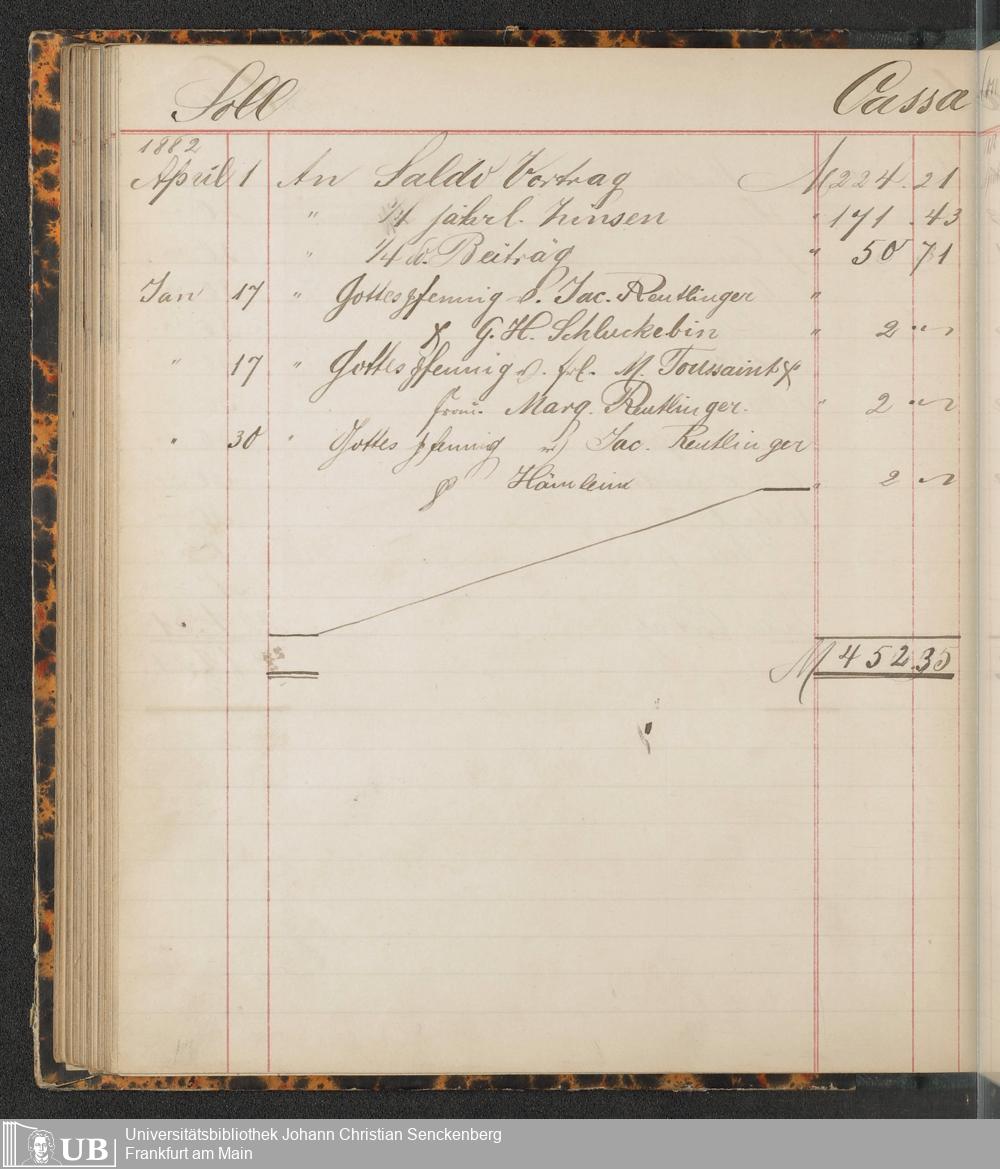 Soll Cassa
1882
April 1 An Saldo Vortrag M 224. 21
" 1/4 jährl. Zinsen " 171. 43
" 1/4 d. Beiträg " 50 71
Jan 17 " Gottespfennig v. Jac. Reutlinger "
G. H. Schluckebin " 2 " "
" 17 " Gottespfennig v. frl. M. Toussaint
Marg. Reutlinger. " 2 " "
" 30 " Gottespfennig v. Jac. Reutlinger
Hämlein " 2 "
M 452.35
UB Universitätsbibliothek Johann Christian Senckenberg
Frankfurt am Main